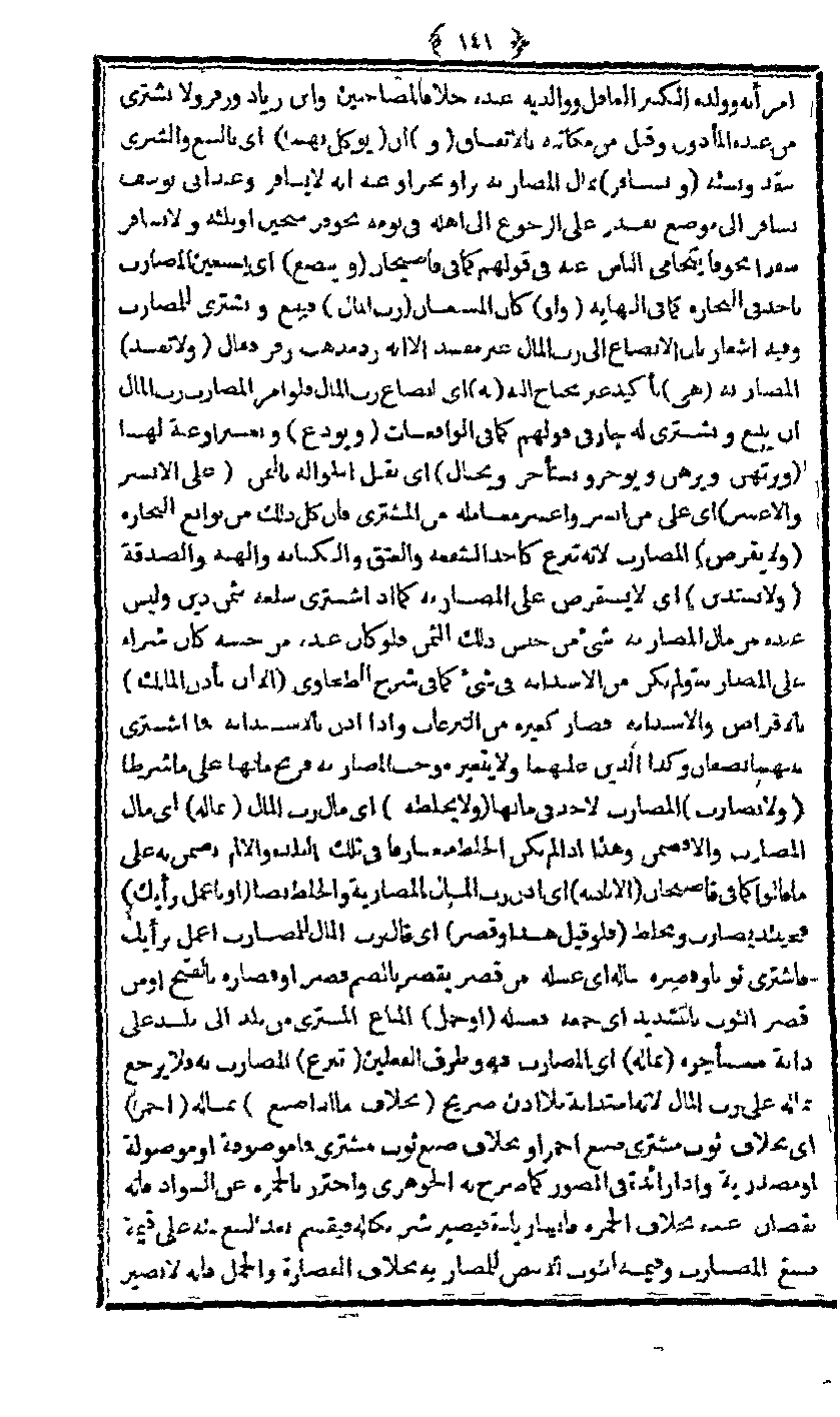 ﴿ ١٤١ ﴾
امرأته وولده الكبير العاقل ووالديه عنده خلافا للصاحبين وابن زياد وزفر ولا يشترى
من عبده المأذون وقيل من مكاتبه بالاتفاق ( و ) ان ( يوكل بهما ) اى بالبيع والشرى
بنقد ونسئة ( و يسافر ) بمال المضاربة برا وبحرا وعنه انه لا يسافر وعند ابى يوسف
يسافر الى موضع يقدر على الرجوع الى اهله فى يومه نحو فرسخين او ثلثة و لا يسافر
سفرا مخوفا يتحامى الناس عنه فى قولهم كما فى قاضيخان ( و يبضع ) اى يستعين المضارب
باحد فى التجارة كما فى النهاية ( ولو ) كان المستعان ( رب المال ) فيبيع و يشترى للمضارب
وفيه اشعار بان الابضاع الى رب المال غير مفسد الا انه رد مذهب زفر فقال ( ولا تفسد )
المضاربة ( هى ) تأكيد غير محتاج اليه ( به ) اى ابضاع رب المال فلو امر المضارب رب المال
ان يبيع و يشترى له جاز فى قولهم كما فى الواقعات ( و يودع )
( ويرتهن ويرهن و يوجر و يستأجر ويحتال ) اى يقبل الحوالة بالثمن ( على الايسر
والاعسر ) اى على من ايسر واعسر معامله من المشترى فان كل ذلك من توابع التجارة
( ولا يقرض ) المضارب لانه تبرع كاخذ الشفعة والعتق والكتابة والهبة والصدقة
( ولا يستدين ) اى لا يستقرض على المضاربة كما اذا اشترى سلعة بثمن دين وليس
عنده من مال المضاربة شئ من جنس ذلك الثمن فلو كان عنده من جنسه كان شراء
على المضاربة ولم يكن من الاستدانة فى شئ كما فى شرح الطحاوى ( الا ان يأذن المالك )
بالاقراض والاستدانة فصار كغيره من التبرعات واذا اذن بالاستدانة فما اشترى
بينهما نصفان وكذا الدين عليهما ولا يتغير موجب المضاربة فربح مالها على ما شرطا
( ولا يضارب ) المضارب لاحد فى مالها ( ولا يخلطه ) اى مال رب المال ( بماله ) اى مال
المضارب والا فيضمن وهذا اذا لم يكن الخلط متعارفا فى تلك البلدة والا لم يضمن به على
ما قالوا كما فى قاضيخان ( الا باذنه ) اى اذن رب المال المضاربة والخلط نصا ( او باعمل رأيك )
فحينئذ يضارب ويخلط ( فلو قيل هذا وقصر ) اى قال رب المال للمضارب اعمل برأيك
فاشترى ثوبا وقصره بماله اى غسله من قصر يقصر بالضم قصرا وقصارة بالفتح او من
قصر الثوب بالتشديد اى جمعه فغسله ( او حمل ) المتاع المشترى من بلد الى بلد على
دابة مستأجرة ( بماله ) اى المضارب فهو ظرف الفعلين ( تبرع ) المضارب به فلا يرجع
بماله على رب المال لانه استدانة بلا اذن صريح ( بخلاف ما اذا صبغ ) بماله ( احمر )
اى بخلاف ثوب مشترى صبغ احمر او بخلاف صبغ ثوب مشترى فما موصوفة او موصولة
او مصدرية واذا زائدة فى الصور كما صرح به الجوهرى واحترز بالحمرة عن السواد فانه
نقصان عنده بخلاف الحمرة فانها زيادة فيصير شريكا له فيقسم بعد البيع ثمنه على قيمة
صبغ المضارب وقيمة الثوب الابيض للمضاربة بخلاف القصارة والحمل فانه لا يصير